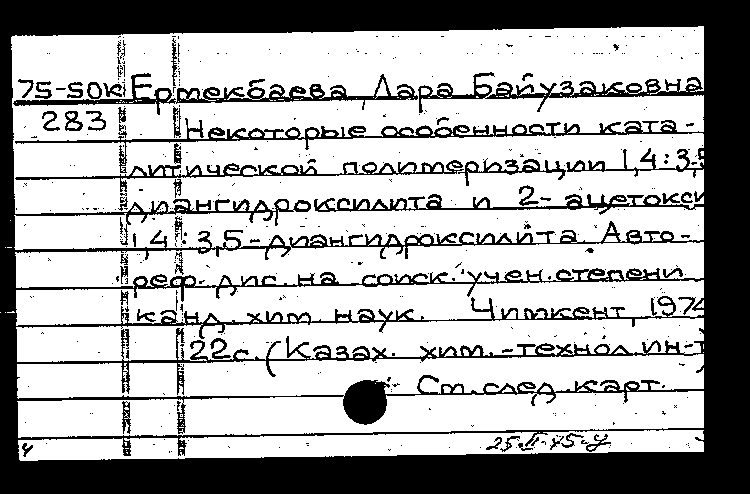 75-50к Ертекбаева Лара Байузаковна
283 Некоторые особенности ката-
литической полимеризации 1,4:3,5
диангидроксилита и 2-ацетокси
1,4:3,5-диангидроксилита. Авто-
реф. дис. на соиск. учен. степени
канд. хим. наук. Чимкент, 1974
22с. (Казах. хим.-технол. ин-т
См. след. карт.